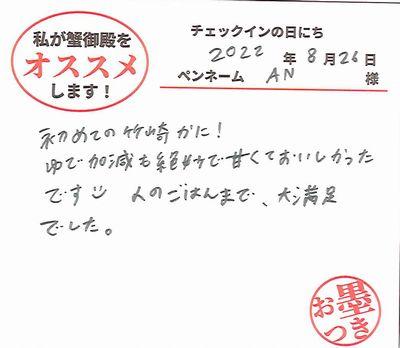 私が蟹御殿を
オススメ
します！
チェックインの日にち
2022 年 8 月 26 日
ペンネーム AN 様
初めての竹崎かに！
ゆで加減も絶妙で甘くておいしかった
です 人のごはんまで、大満足
でした。
お墨
つき